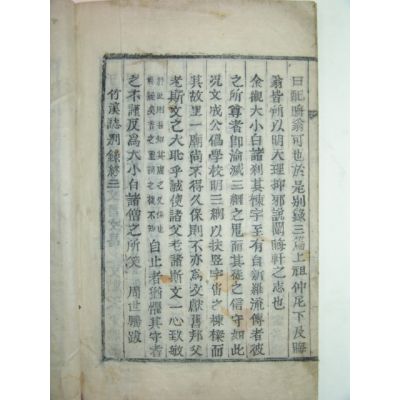 曰配晦翁可也於是別錄三篇上祖仲尼下及晦
翁皆所以明大理抑邪說闡晦軒之志也
今觀大小白諸刹其棟宇至有自新羅流傳者彼
之所尊者卽淪滅三綱之鬼而其徒之信守如此
况文成公倡學校明三綱以扶竪宇宙之棟樑而
其故里一廟尚不得久保則不亦爲文獻舊邦父
老斯文之大耻乎誠使諸父老諸斯文一心致敬
自止者猶懼其守者
之不謹反爲大小白諸僧之所笑 周世鵬跋
竹溪誌別錄終